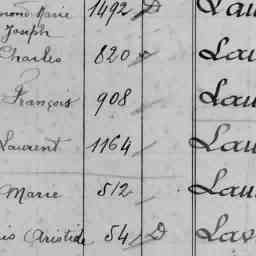 Marie 1492 D Lau
Joseph
Charles 820 Lau
François 908 Lau
Laurent 1164 Lau
Marie 512 Lau
Aristide 54 D Lav